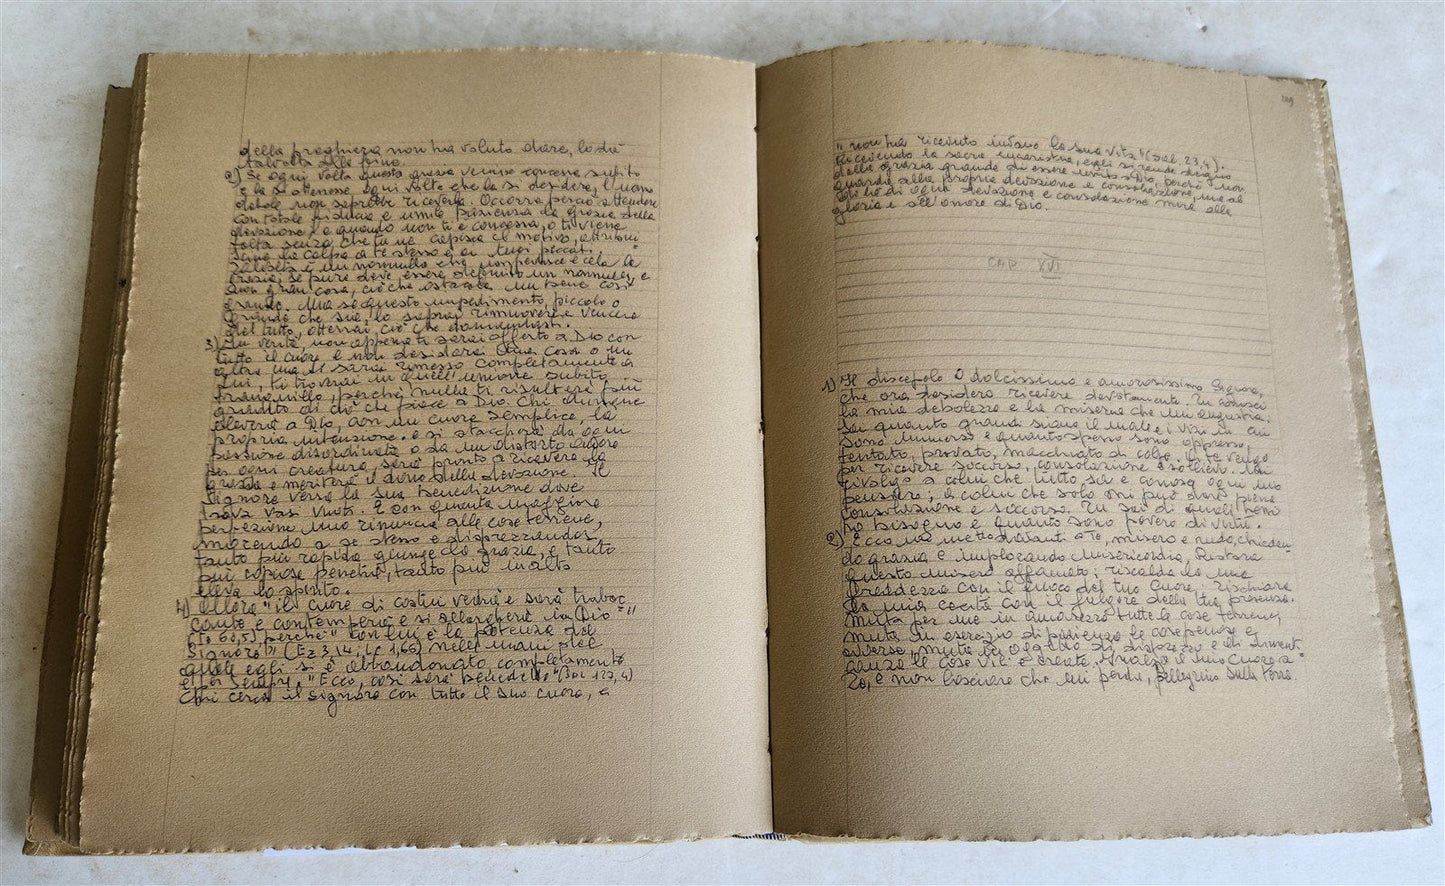 della preghiera non ha voluto dare, lo dà
talvolta alla fine.
2) Se ogni volta questa grazia venisse concessa subito
e la si ottenesse ogni volta che la si desidera, l'uomo
debole non saprebbe riceverla. Occorre perciò attendere
con totale fiducia e umile pazienza la grazia della
devozione; e quando non te è concessa, o ti viene
tolta senza che tu ne capisca il motivo, attribui
scine la colpa a te stesso e ai tuoi peccati.
Talvolta è un nonnulla che impedisce e cela la
grazia, se pure deve essere definito un nonnulla, e
non gran cosa, ciò che ostacola un bene così
grande. Ma se questo impedimento, piccolo o
grande che sia, lo saprai rimuovere e vincere
del tutto, otterrai ciò che domandasti.
3) In verità, non appena ti sarai offerto a Dio con
tutto il cuore e non desidererai una cosa o un
altra ma ti sarai rimesso completamente a
Lui, ti troverai in quell'unione subito
tranquillo, perché nulla ti risulterà più
gradito di ciò che piace a Dio. Chi dunque
eleverà a Dio, con un cuore semplice, la
propria intenzione e si staccherà da ogni
passione disordinata o da un distorto amore
per ogni creatura, sarà pronto a ricevere la
grazia e meriterà il dono della devozione. Il
Signore versa la sua benedizione dove
trova vasi vuoti. E con quanta maggiore
perfezione uno rinuncia alle cose terrene,
morendo a se stesso e disprezzandosi,
tanto più rapida giunge la grazia, e tanto
più copiosa penetra, tanto più in alto
eleva lo spirito.
4) Allora "il cuore di costui vedrà e sarà traboc
cante e contemplerà e si allargherà in Dio"
(Is 60,5) perché "con lui è la potenza del
Signore" (Ez 3,14, Lc 1,66) nelle mani del
quale egli si è abbandonato completamente
e per sempre. "Ecco, così sarà benedetto" (Sal 127,4)
chi cerca il Signore con tutto il suo cuore, e
109
"non ha ricevuto invano la sua vita" (Sal. 23,4).
Ricevendo la sacra eucaristia, egli si rende degno
della grazia grande di essere unito a Dio, perché non
guarda alla propria devozione e consolazione, ma al
di là di ogni devozione e consolazione mira alla
gloria e all'onore di Dio.
CAP XVI
1) Il discepolo O dolcissimo e amorosissimo Signore,
che ora desidero ricevere devotamente. Tu conosci
la mia debolezza e la miseria che mi angustia.
Sai quanto grandi siano il male e i vizi in cui
sono immerso e quanto spesso sono oppresso,
tentato, provato, macchiato di colpe. A te vengo
per ricevere soccorso, consolazione e sollievo. Mi
rivolgo a colui che tutto sa e conosce ogni mio
pensiero; a colui che solo mi può dare piena
consolazione e soccorso. Tu sai di quali beni
ho bisogno e quanto sono povero di virtù.
2) Ecco mi metto davanti a Te, misero e nudo, chieden
do grazia e implorando misericordia. Ristora
questo misero affamato; riscalda la mia
freddezza con il fuoco del tuo Cuore, rischiara
la mia cecità con il fulgore della tua presenza.
Muta per me in amarezza tutte le cose terrene,
muta in esercizio di pazienza le cose penose e
avverse, muta in oggetto di disprezzo e di dimenti
canza le cose vili e create. Innalza il mio cuore a
Te, e non lasciare che mi perda, pellegrino sulla terra.